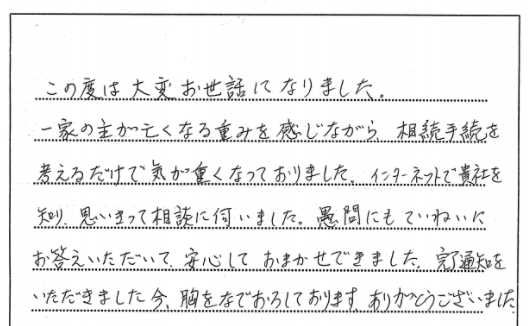 この度は大変お世話になりました。
一家の主が亡くなる重みを感じながら、相続手続を
考えるだけで気が重くなっておりました。インターネットで貴社を
知り、思いきって相談に伺いました。愚問にもていねいに
お答えいただいて、安心しておまかせできました。完了通知を
いただきました今、胸をなでおろしております。ありがとうございました